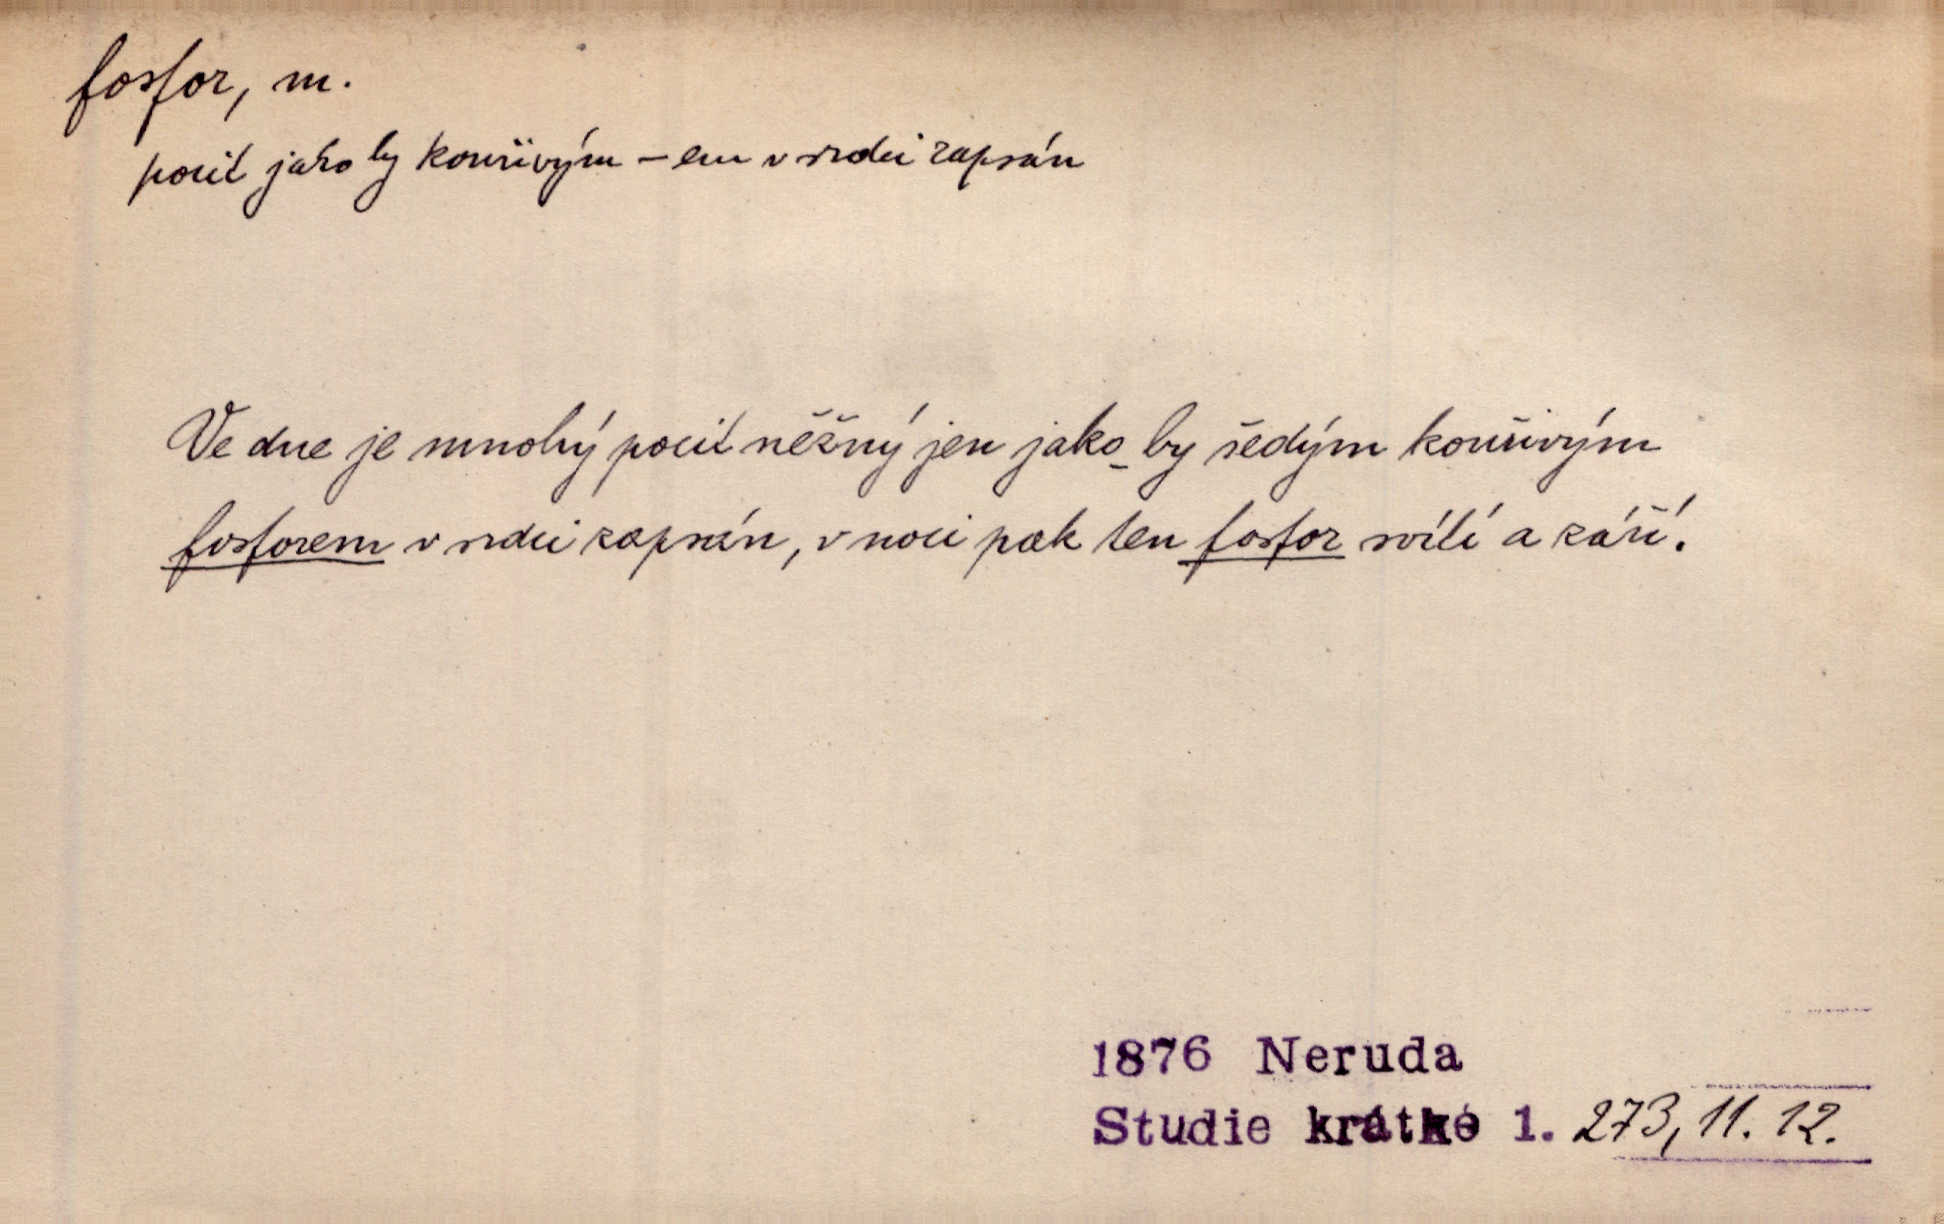 fosfor, m.
pocit jako by kouřivým – em v srdci zapsán
Ve dne je mnohý pocit něžný jen jako by šedým kouřivým
fosforem v srdci zapsán, v noci pak ten fosfor svítí a září.
1876 Neruda
Studie krátké 1. 273, 11. 12.